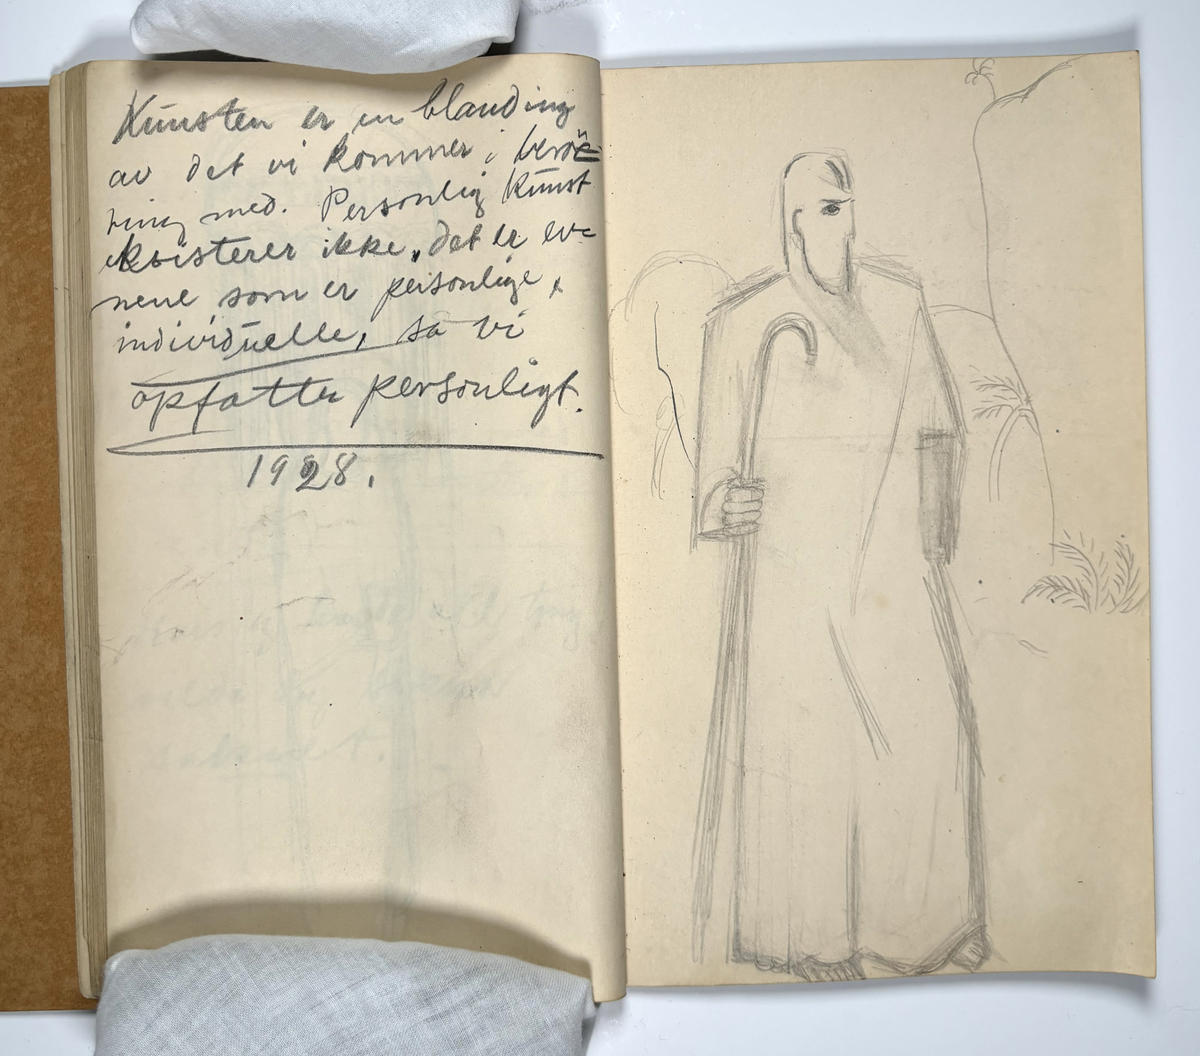 Kunsten er en blanding
av det vi kommer i berö=
ring med. Personlig Kunst
eksisterer ikke, det er ev=
nene som er personlige,
individuelle, så vi
opfatter personligt.
1928.